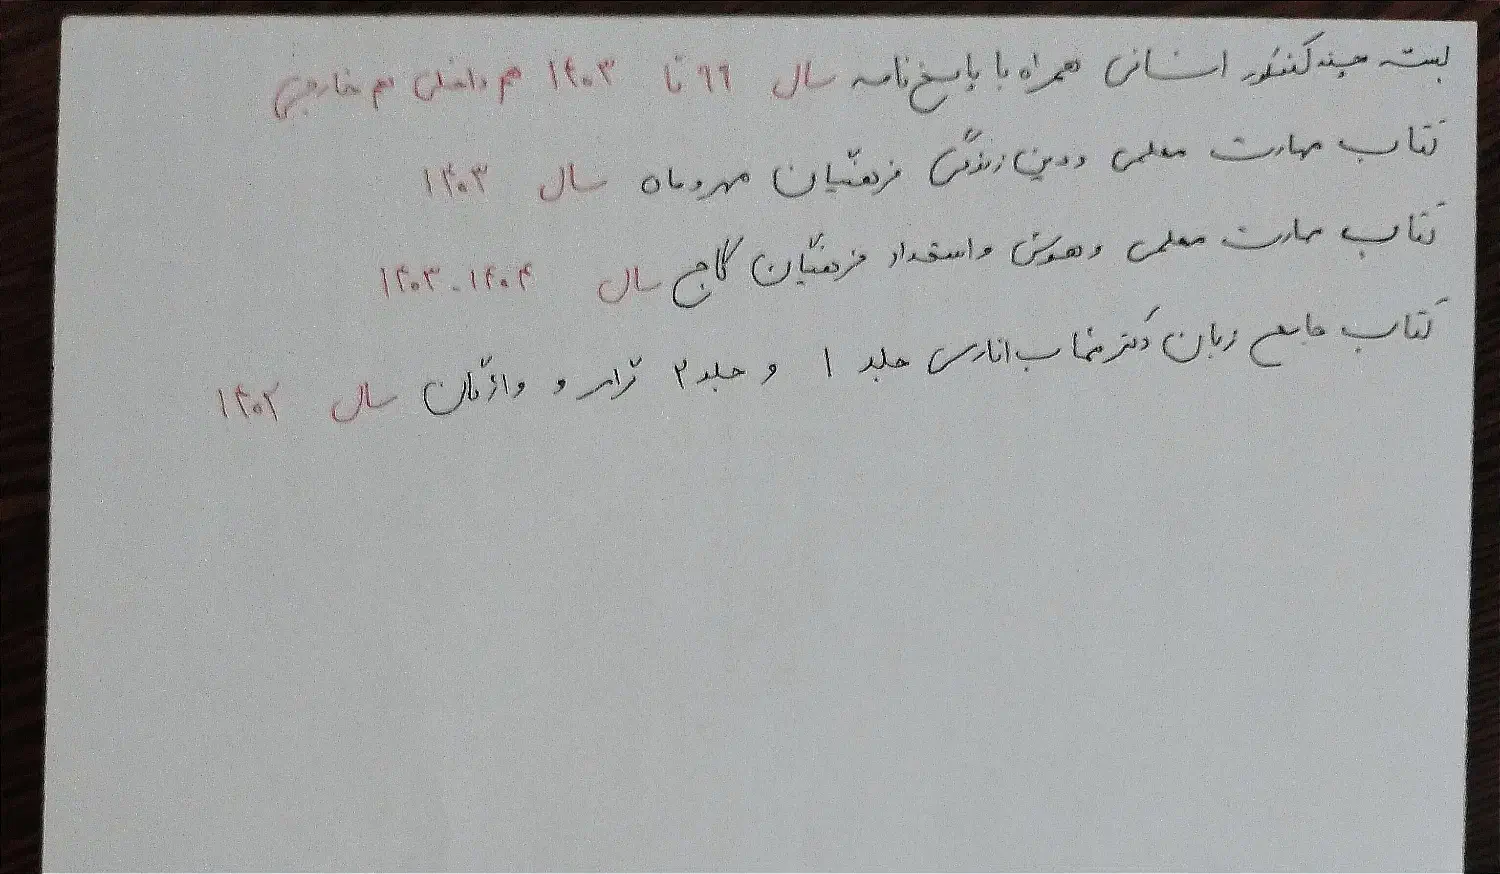 بسته چند کنکور انسانی همراه با پاسخ نامه سال ۹۹ تا ۱۴۰۳ هم داخلی هم خارجی
کتاب مهارت معلمی و دین زندگی فرهنگیان مهروماه سال ۱۴۰۳
کتاب مهارت معلمی و هوش و استعداد فرهنگیان گاج سال ۱۴۰۳-۱۴۰۴
کتاب جامع زبان دکتر شهاب اناری جلد ۱ و جلد ۲ گرامر و واژگان سال ۱۴۰۲